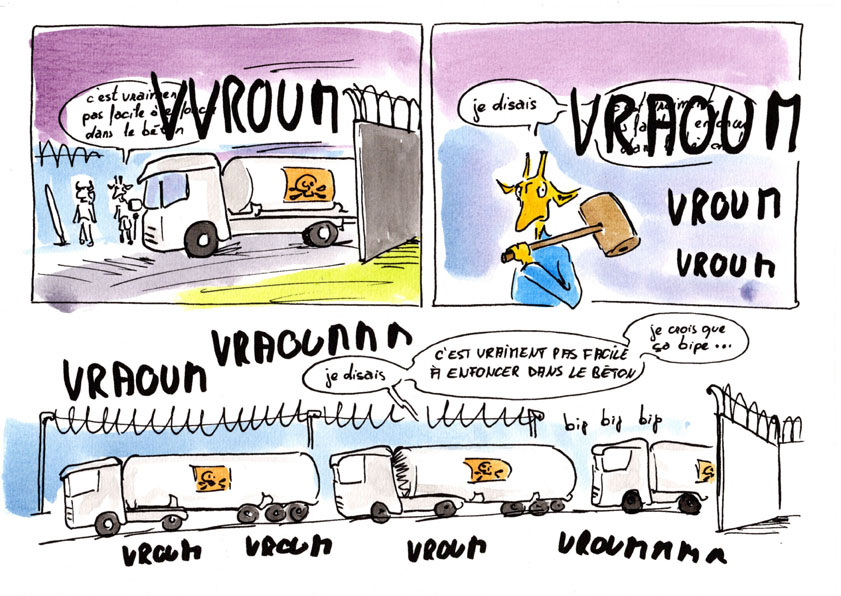 c'est vraiment
pas facile à enfoncer
dans le béton
VVROUM
je disais
VRAOUM
VROUM
VROUM
VRAOUM
VRAOUMMM
je disais
C'EST VRAIMENT PAS FACILE
À ENFONCER DANS LE BÉTON
je crois que
ça bipe...
bip bip bip
VROUM
VROUM
VROUM
VROUMMMM